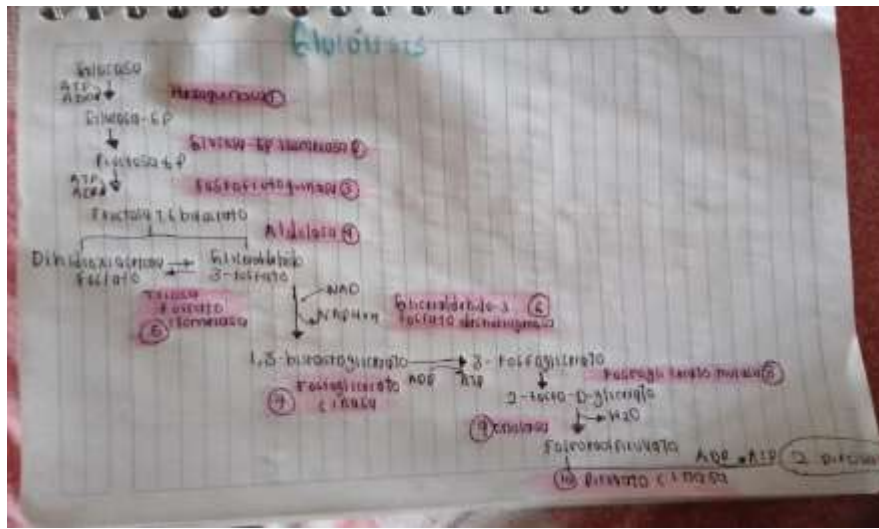 Glucólisis
Glucosa
ATP
ADP
Hexoquinasa ①
Glucosa-6P
Glucosa-6P isomerasa ②
Fructosa 6P
ATP
ADP
Fosfofructoquinasa ③
Fructosa 1,6 bifosfato
Aldolasa ④
Dihidroxiacetona Fosfato
Gliceraldehido 3-fosfato
Triosa
Fosfato
⑤ isomerasa
NAD
NADH+H
Gliceraldehido-3 ⑥
Fosfato deshidrogenasa
1,3-bifosfoglicerato
3-Fosfoglicerato
ADP ATP
⑦ Fosfoglicerato
cinasa
Fosfoglicerato mutasa ⑧
2-Fosfo-D-glicerato
H2O
⑨ enolasa
Fosfoenolpiruvato
ADP ATP
2
⑩ Piruvato cinasa